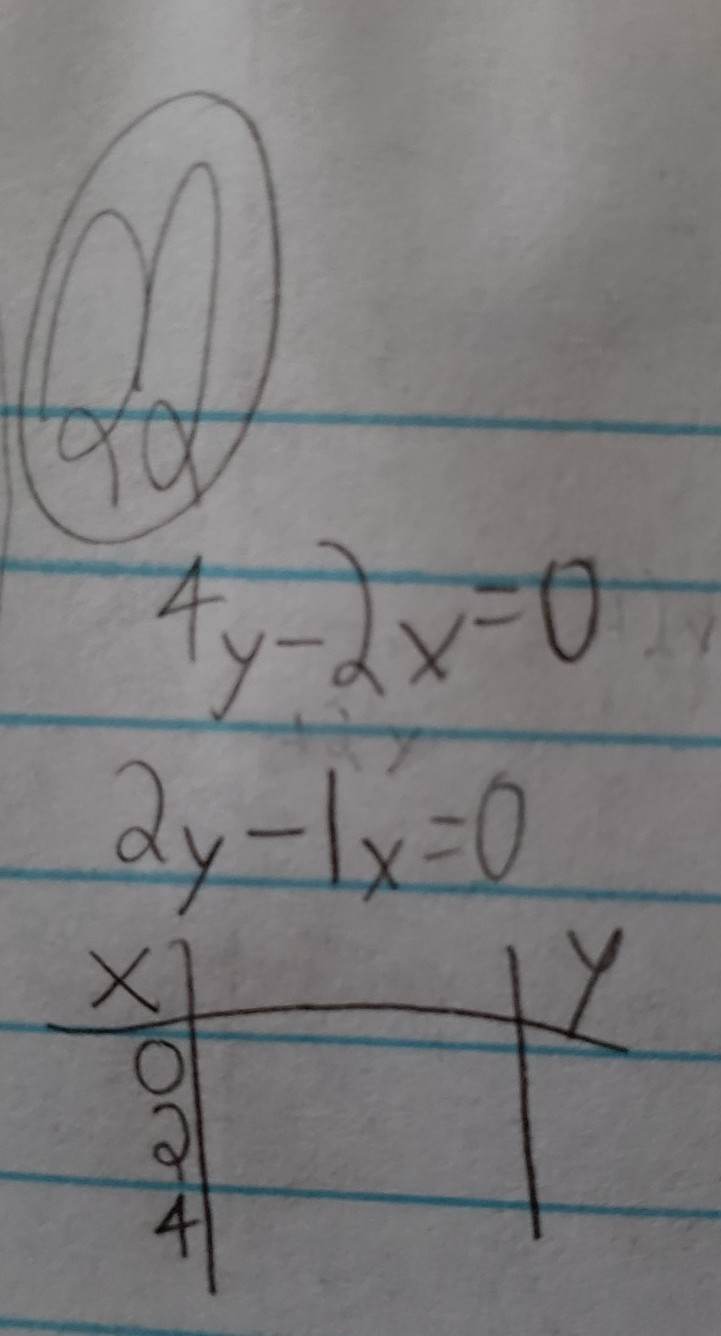 22
4y-2x=0
2y-1x=0
x y
0
2
4